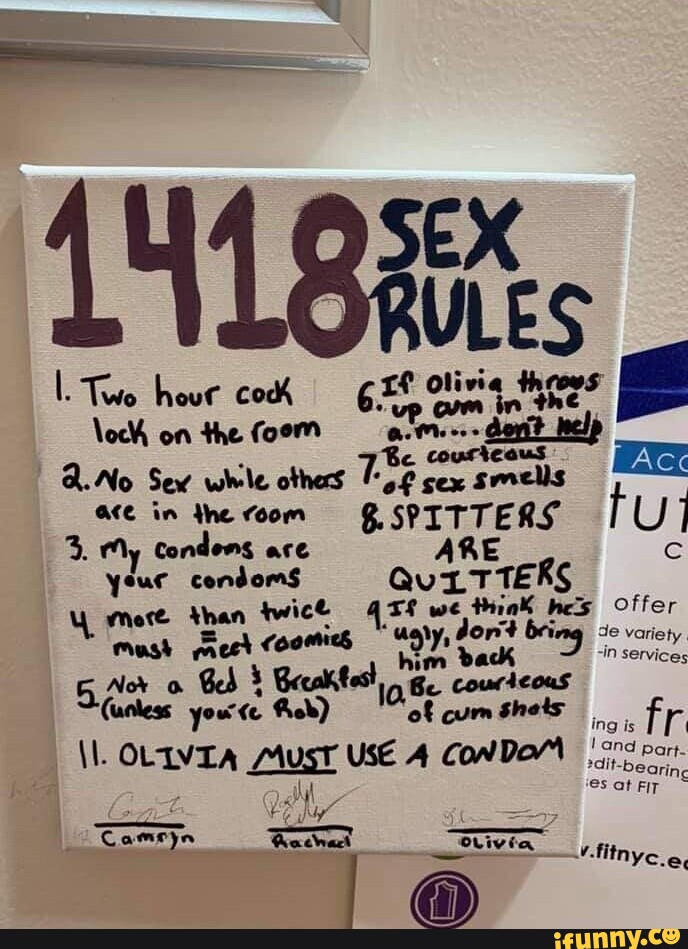 1418 SEX
RULES
1. Two hour cock
lock on the room
2. No Sex while others
are in the room
3. My condoms are
your condoms
4. more than twice
must meet roomies
5. Not a Bed & Breakfast
(unless you're Rob)
6. If Olivia throws
up cum in the
a.m.... don't help
7. Be courteous
of sex smells
8. SPITTERS
ARE
QUITTERS
9 If we think he's
ugly, don't bring
him back
10. Be courteous
of cum shots
11. OLIVIA MUST USE A CONDOM
Camryn
Rachael
Olivia
ACC
C
offer
de variety
-in services
ing is
l and part-
edit-bearing
es at FIT
.fitnyc.e
ifunny.co